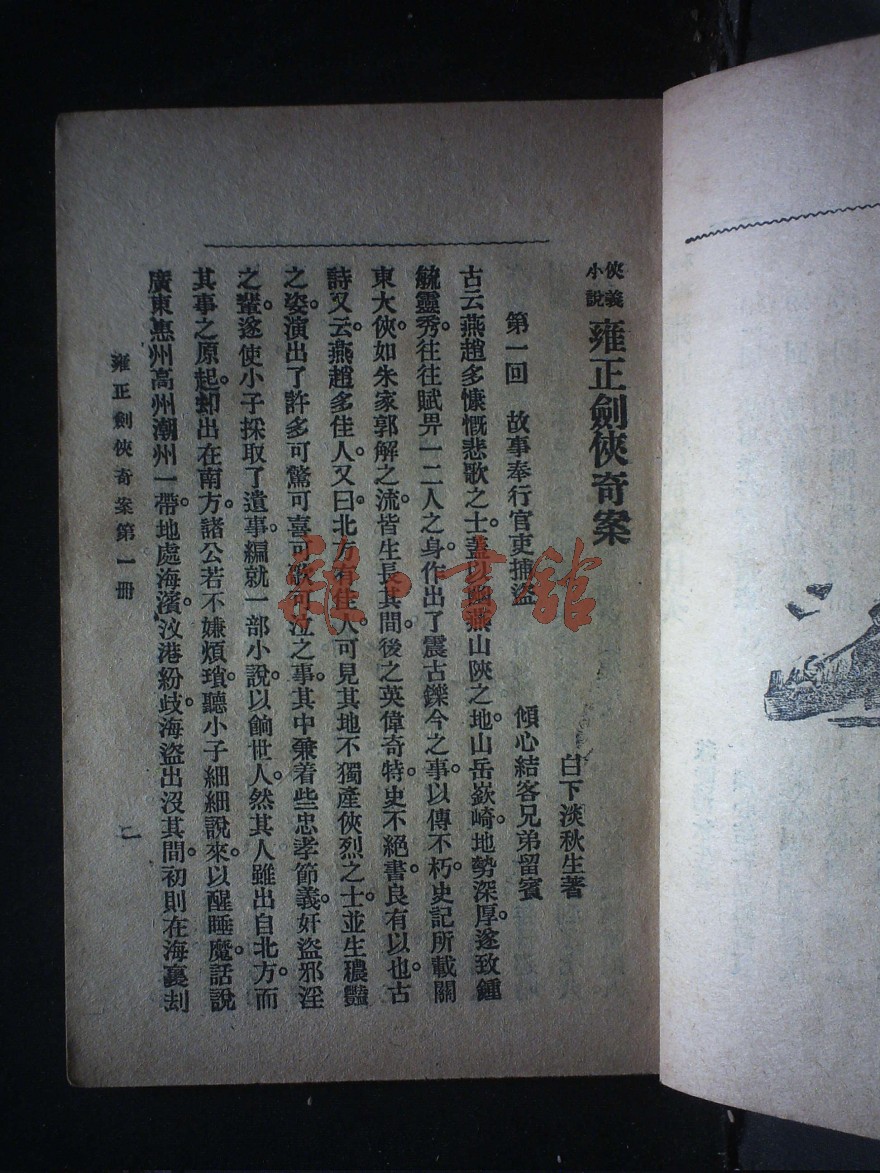 俠義小說 雍正劍俠奇案
白下淡秋生著
第一回 故事奉行官吏捕盜 傾心結客兄弟留賓
古云燕趙多慷慨悲歌之士。蓋以幽燕山陝之地。山岳嶔崎。地勢深厚。遂致鍾
毓靈秀。往往賦畀一二人之身。作出了震古鑠今之事。以傳不朽。史記所載關
東大俠。如朱家郭解之流。皆生長其間。後之英偉奇特。史不絕書。良有以也。古
詩又云。燕趙多佳人。又曰。北方有佳人。可見其地不獨產俠烈之士。並生穠豔
之姿。演出了許多可驚可喜可歌可泣之事。其中兼着些忠孝節義。奸盜邪淫
之輩。遂使小子採取了遺事。編就一部小說。以餉世人。然其人雖出自北方。而
其事之原起。却出在南方。諸公若不嫌煩瑣。聽小子細細說來。以醒睡魔。話說
廣東惠州高州潮州一帶。地處海濱。汊港紛歧。海盜出沒其間。初則在海裏刦
雍正劍俠奇案第一冊
雜·書館